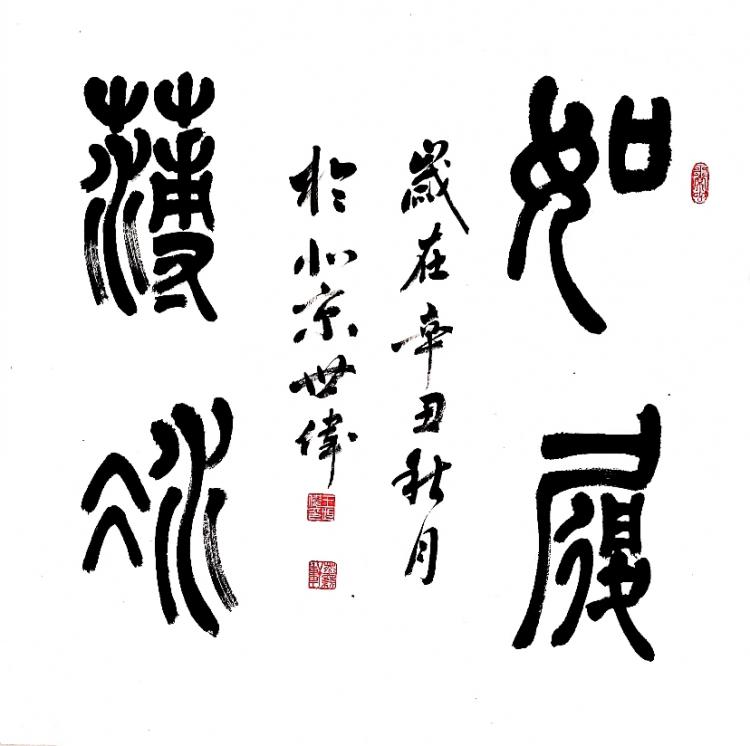 如履
歲在辛丑秋月
於北京世偉
薄冰